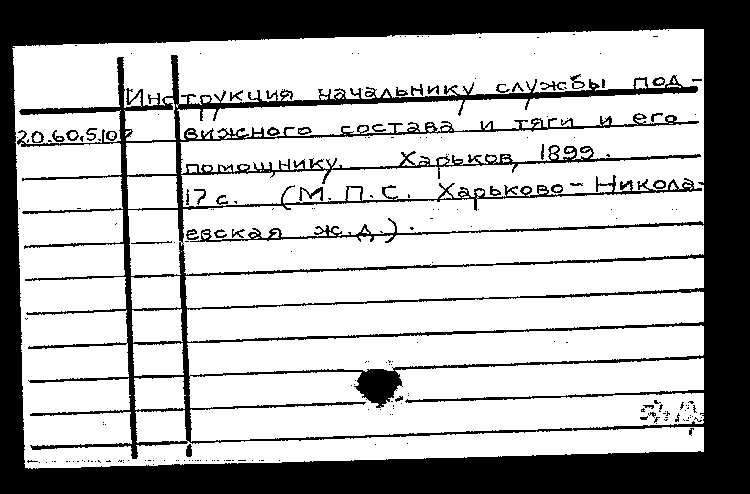 Инструкция начальнику службы под-
20.60.5.107 вижного состава и тяги и его
помощнику. Харьков, 1899.
17 с. (М.П.С. Харьково-Никола-
евская ж.д.).